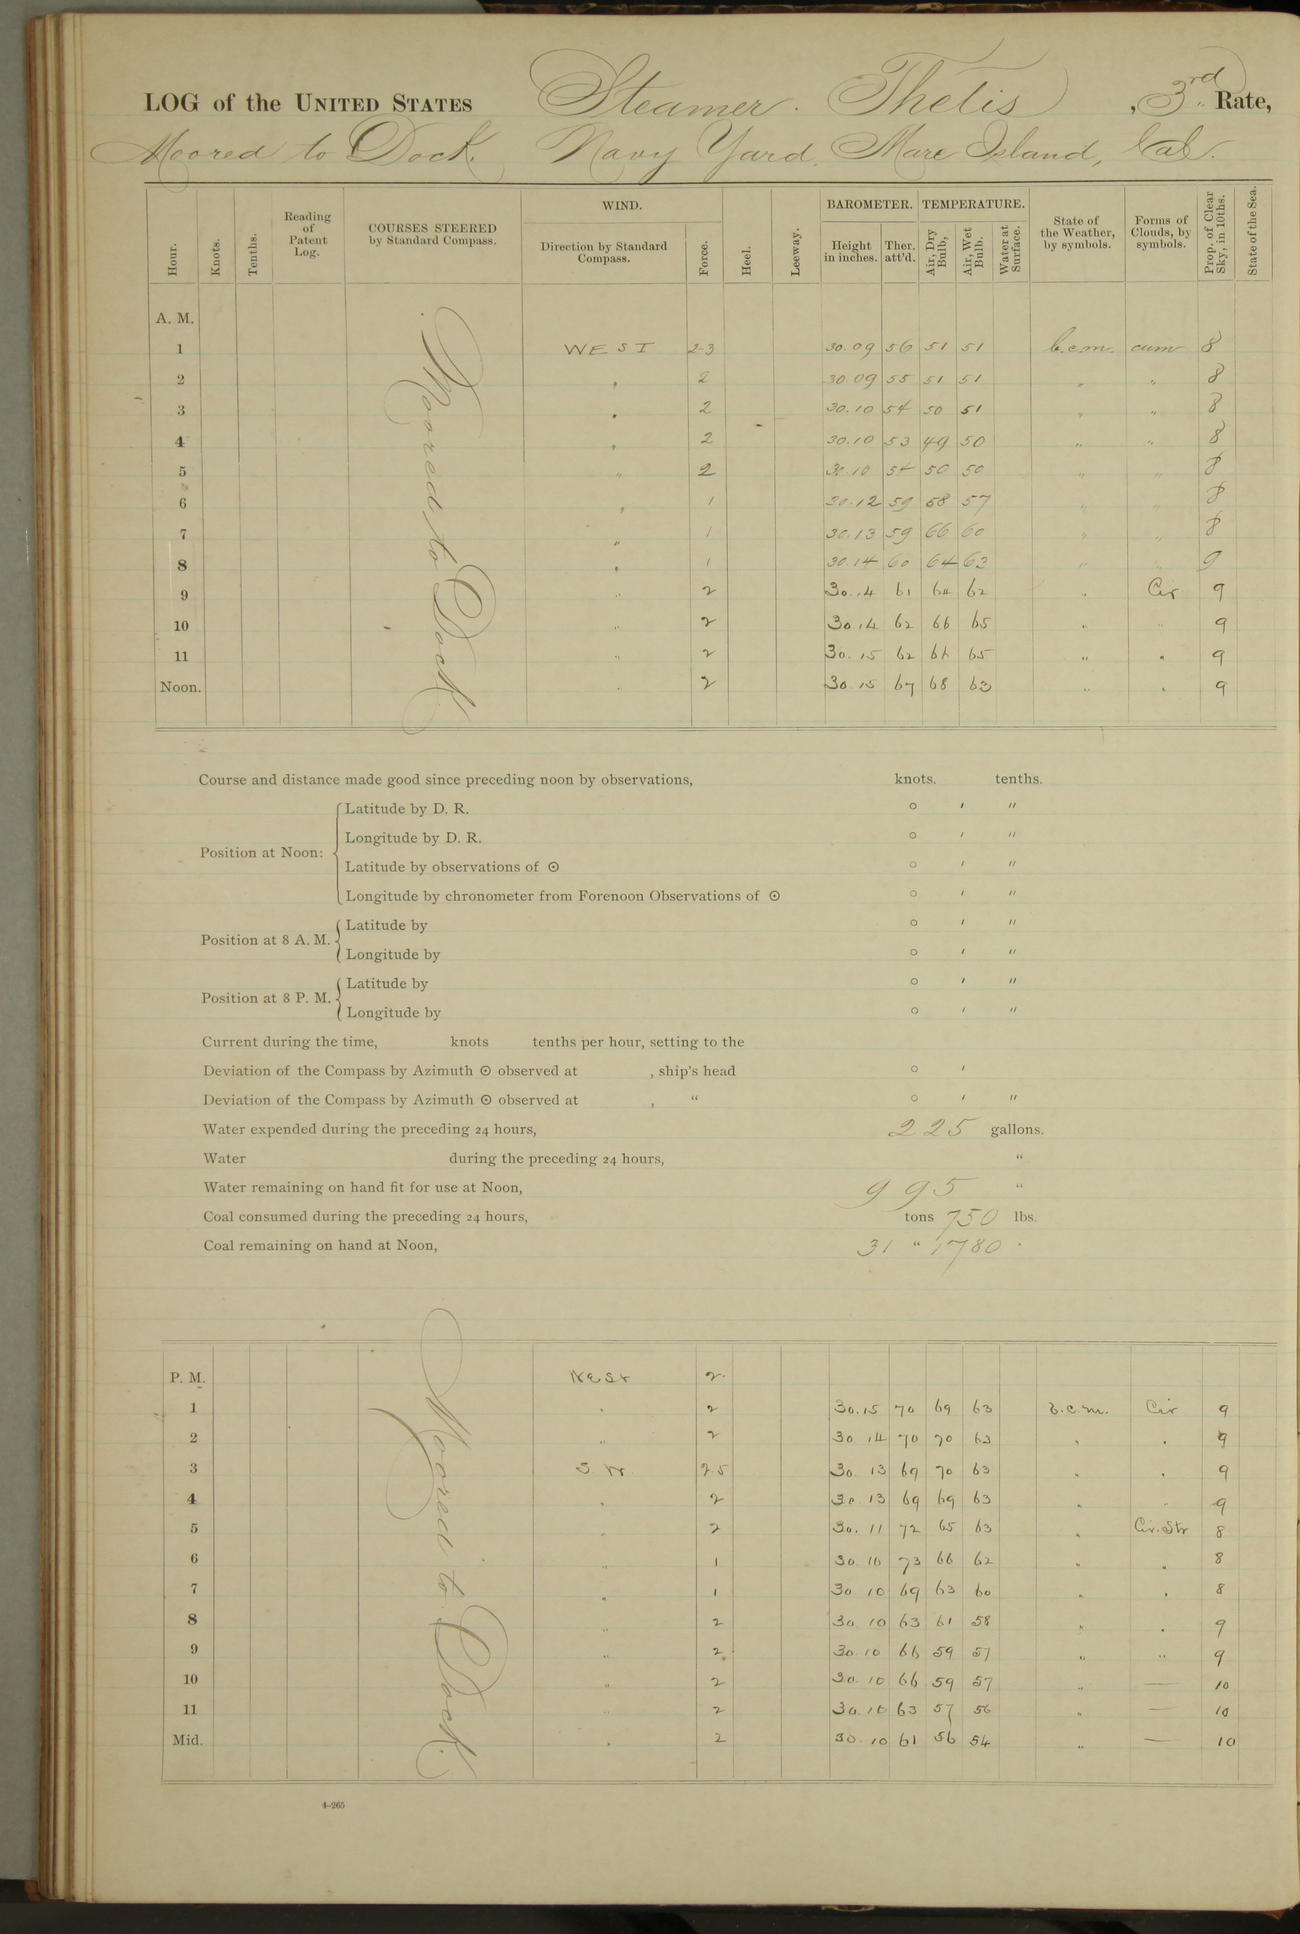 LOG of the UNITED STATES Steamer. Thetis, 3rd Rate,
Moored to Dock. Navy Yard, Mare Island, Cal.
Hour. Knots. Tenths. Reading of Patent Log. COURSES STEERED by Standard Compass. WIND. Direction by Standard Compass. Force. Heel. Leeway. BAROMETER. Height in inches. Ther. att'd. TEMPERATURE. Air, Dry Bulb, Air, Wet Bulb. Water at Surface. State of the Weather, by symbols. Forms of Clouds, by symbols. Prop. of Clear Sky, in 10ths. State of the Sea.
A. M.
Moored to Dock.
1 WEST 2-3 30.09 56 51 51 b.c.m. cum 8
2 " 2 30.09 55 51 51 " " 8
3 " 2 30.10 54 50 51 " " 8
4 " 2 30.10 53 49 50 " " 8
5 " 2 30.10 54 50 50 " " 8
6 " 1 30.12 59 58 57 " " 8
7 " 1 30.13 59 66 60 " " 8
8 " 1 30.14 60 64 63 " " 9
9 " 2 30.14 61 64 62 " Cir 9
10 " 2 30.14 62 66 65 " " 9
11 " 2 30.15 62 66 65 " " 9
Noon. " 2 30.15 67 68 63 " " 9
Course and distance made good since preceding noon by observations, knots. tenths.
Position at Noon:
Latitude by D. R. ° ′ ″
Longitude by D. R. ° ′ ″
Latitude by observations of ⊙ ° ′ ″
Longitude by chronometer from Forenoon Observations of ⊙ ° ′ ″
Position at 8 A. M.
Latitude by ° ′ ″
Longitude by ° ′ ″
Position at 8 P. M.
Latitude by ° ′ ″
Longitude by ° ′ ″
Current during the time, knots tenths per hour, setting to the
Deviation of the Compass by Azimuth ⊙ observed at , ship's head ° ′
Deviation of the Compass by Azimuth ⊙ observed at , " ° ′ ″
Water expended during the preceding 24 hours, 225 gallons.
Water during the preceding 24 hours, "
Water remaining on hand fit for use at Noon, 995 "
Coal consumed during the preceding 24 hours, tons 750 lbs.
Coal remaining on hand at Noon, 31 " 1780 "
P. M. West 2
Moored to Dock.
1 " 2 30.15 70 69 63 b.c.m. Cir 9
2 " 2 30.14 70 70 63 " " 9
3 S W 2.5 30.13 69 70 63 " " 9
4 " 2 30.13 69 69 63 " " 9
5 " 2 30.11 72 65 63 " Cir. Str 8
6 " 1 30.10 73 66 62 " " 8
7 " 1 30.10 69 63 60 " " 8
8 " 2 30.10 63 61 58 " " 9
9 " 2 30.10 66 59 57 " " 9
10 " 2 30.10 66 59 57 " — 10
11 " 2 30.10 63 57 56 " — 10
Mid. " 2 30.10 61 56 54 " — 10
4–265